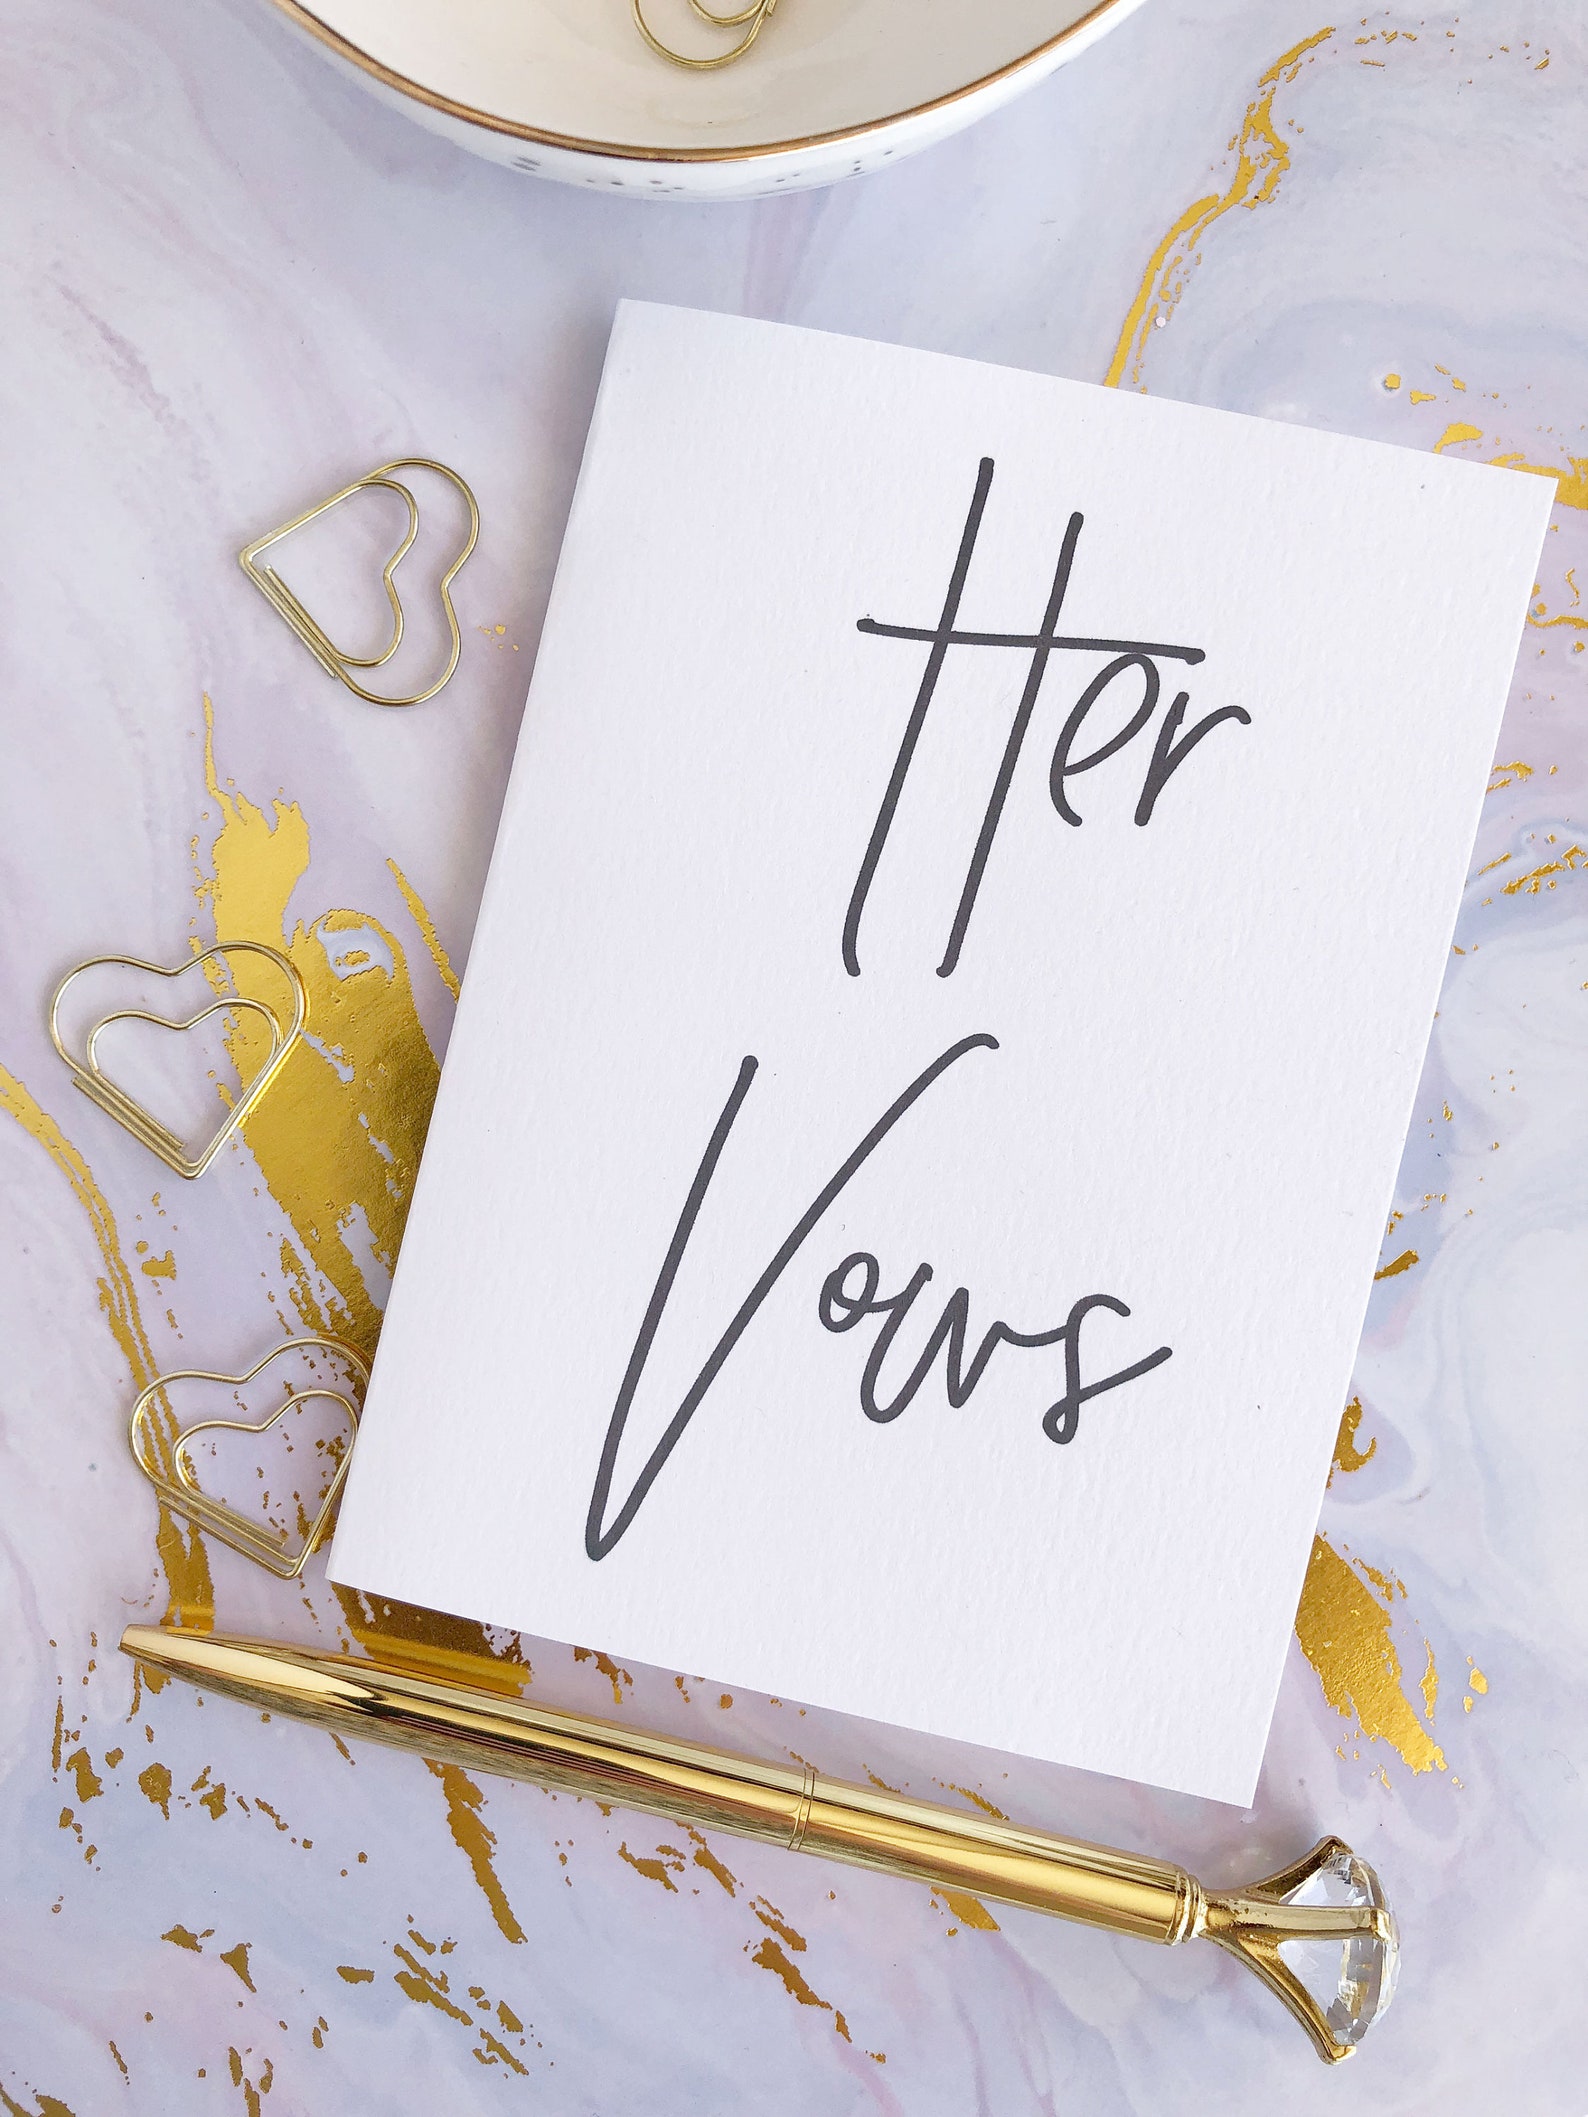 Her
Vows